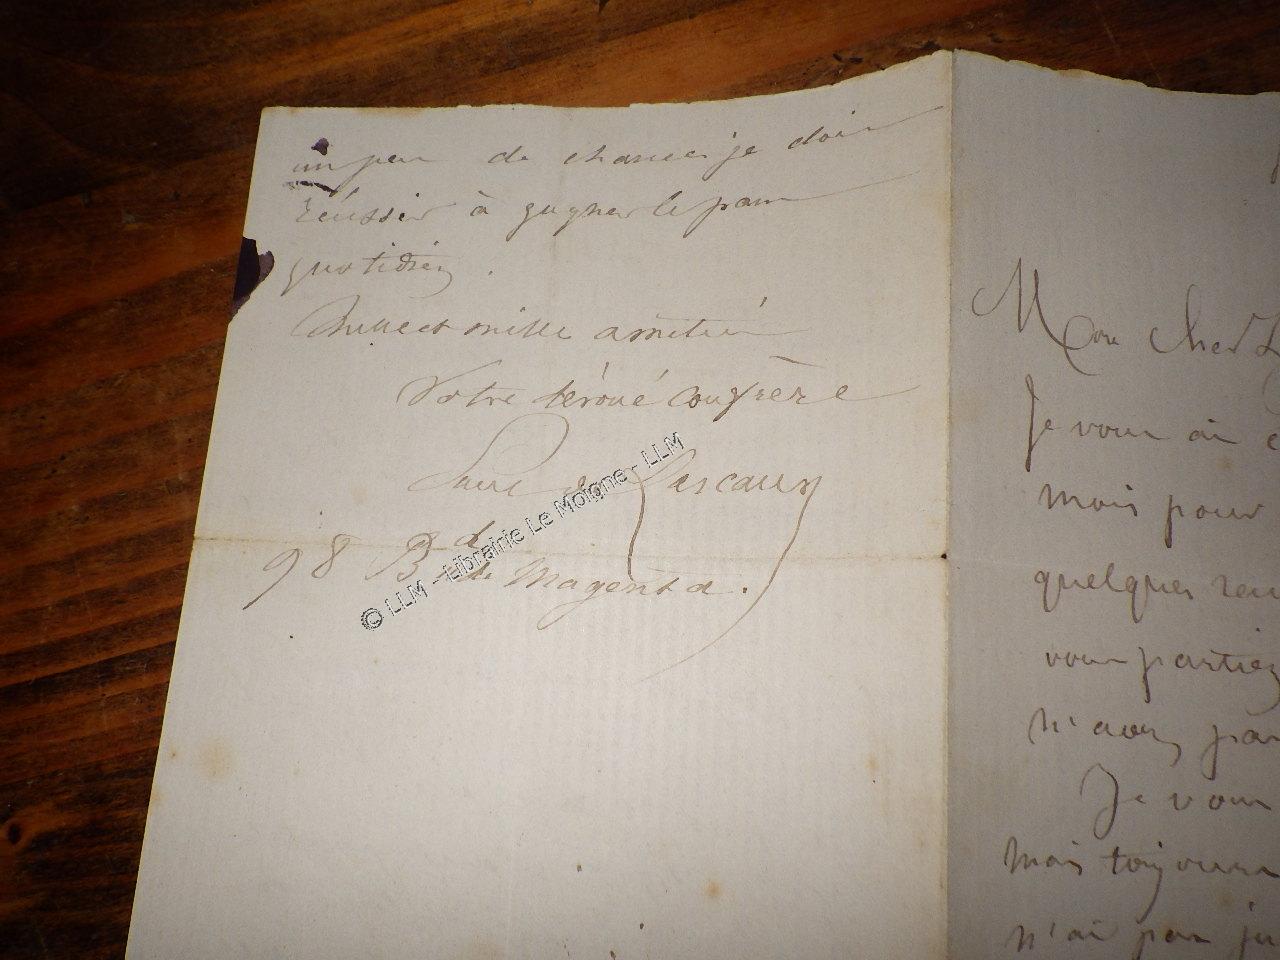 un peu de chance je dois
réussir à gagner le pain
quotidien.
mille amitiés
Votre dévoué confrère
Paul de Lascaux
98 Bd de Magenta.
© LLM - Librairie Le Moigne - LLM
Mon cher
Je vous ai
mais pour
quelques
vous partiez
n'avez pas
Je vous
Mais toujours
n'ai pas